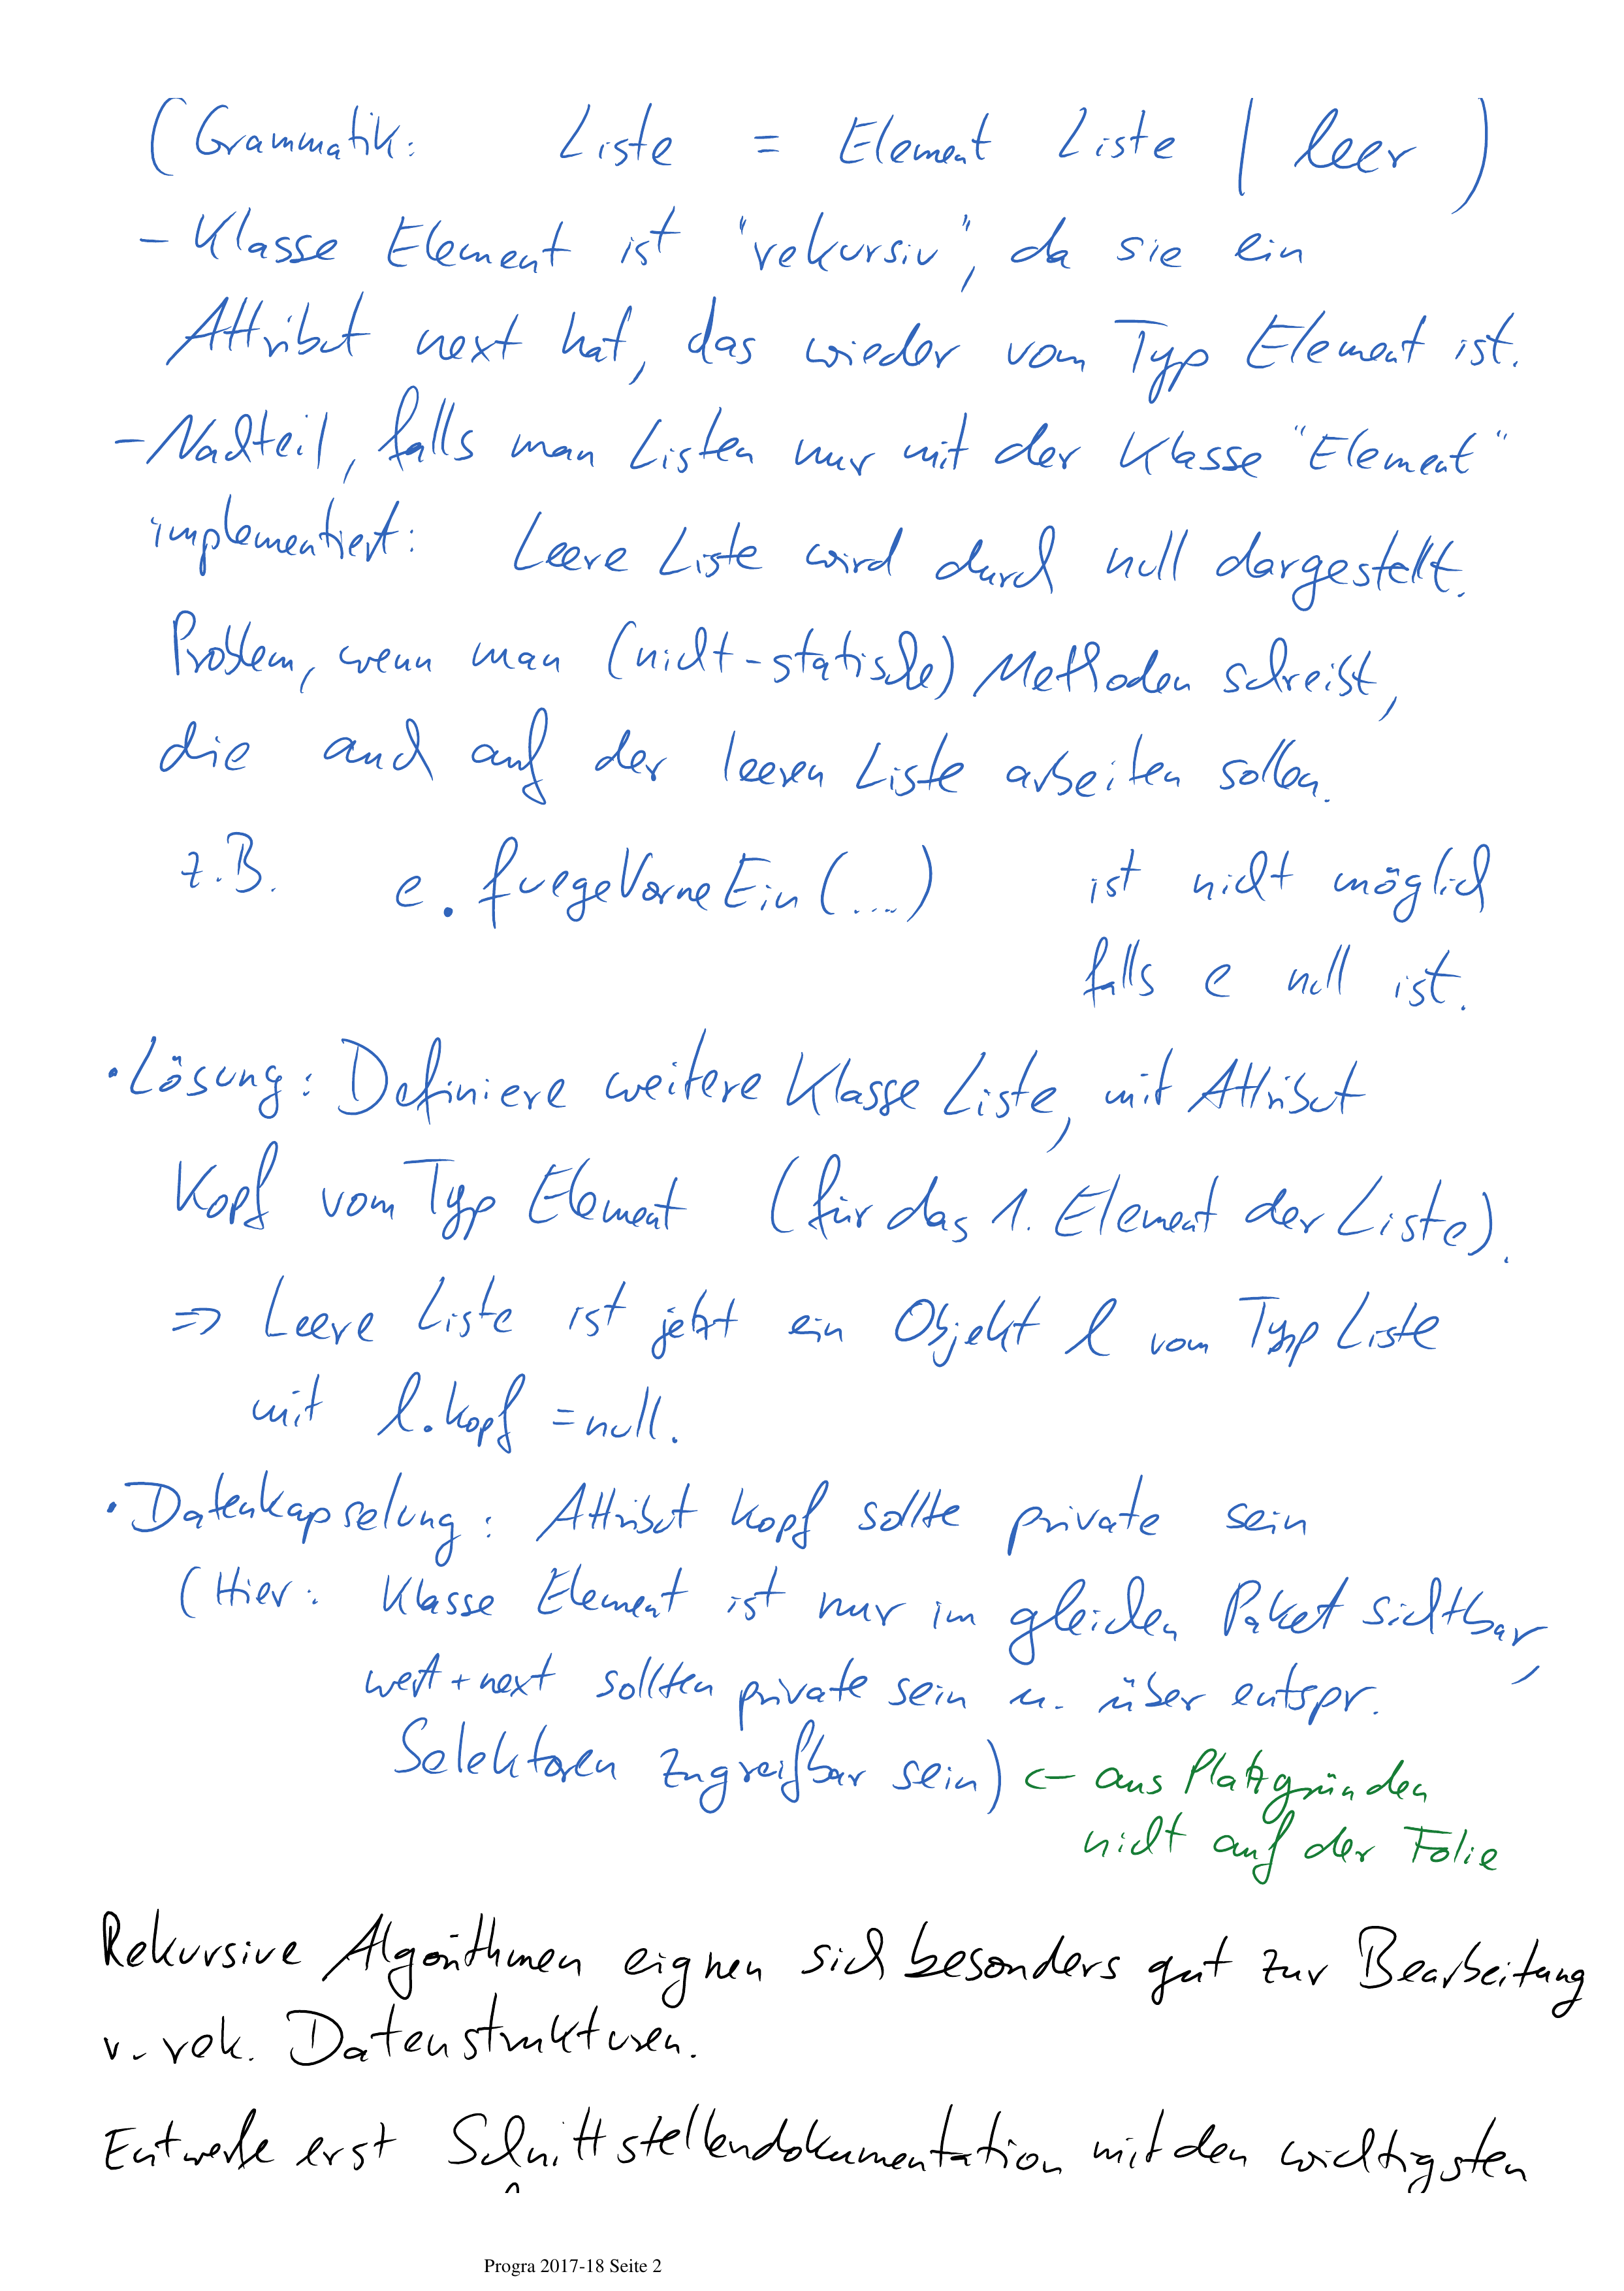 (Grammatik: Liste = Element Liste | leer )
- Klasse Element ist "rekursiv", da sie ein
Attribut next hat, das wieder vom Typ Element ist.
- Nachteil, falls man Listen nur mit der Klasse "Element"
implementiert: Leere Liste wird durch null dargestellt.
Problem, wenn man (nicht-statische) Methoden schreibt,
die auch auf der leeren Liste arbeiten sollen.
z.B. e.fuegeVorneEin(...) ist nicht möglich
falls e null ist.
• Lösung: Definiere weitere Klasse Liste, mit Attribut
Kopf vom Typ Element (für das 1. Element der Liste).
=> Leere Liste ist jetzt ein Objekt l vom Typ Liste
mit l.kopf = null.
• Datenkapselung: Attribut kopf sollte private sein
(Hier: Klasse Element ist nur im gleichen Paket sichtbar,
wert + next sollten private sein u. über entspr.
Selektoren zugreifbar sein) <- aus Platzgründen
nicht auf der Folie
Rekursive Algorithmen eignen sich besonders gut zur Bearbeitung
v. rek. Datenstrukturen.
Entwerfe erst Schnittstellendokumentation mit den wichtigsten
Progra 2017-18 Seite 2